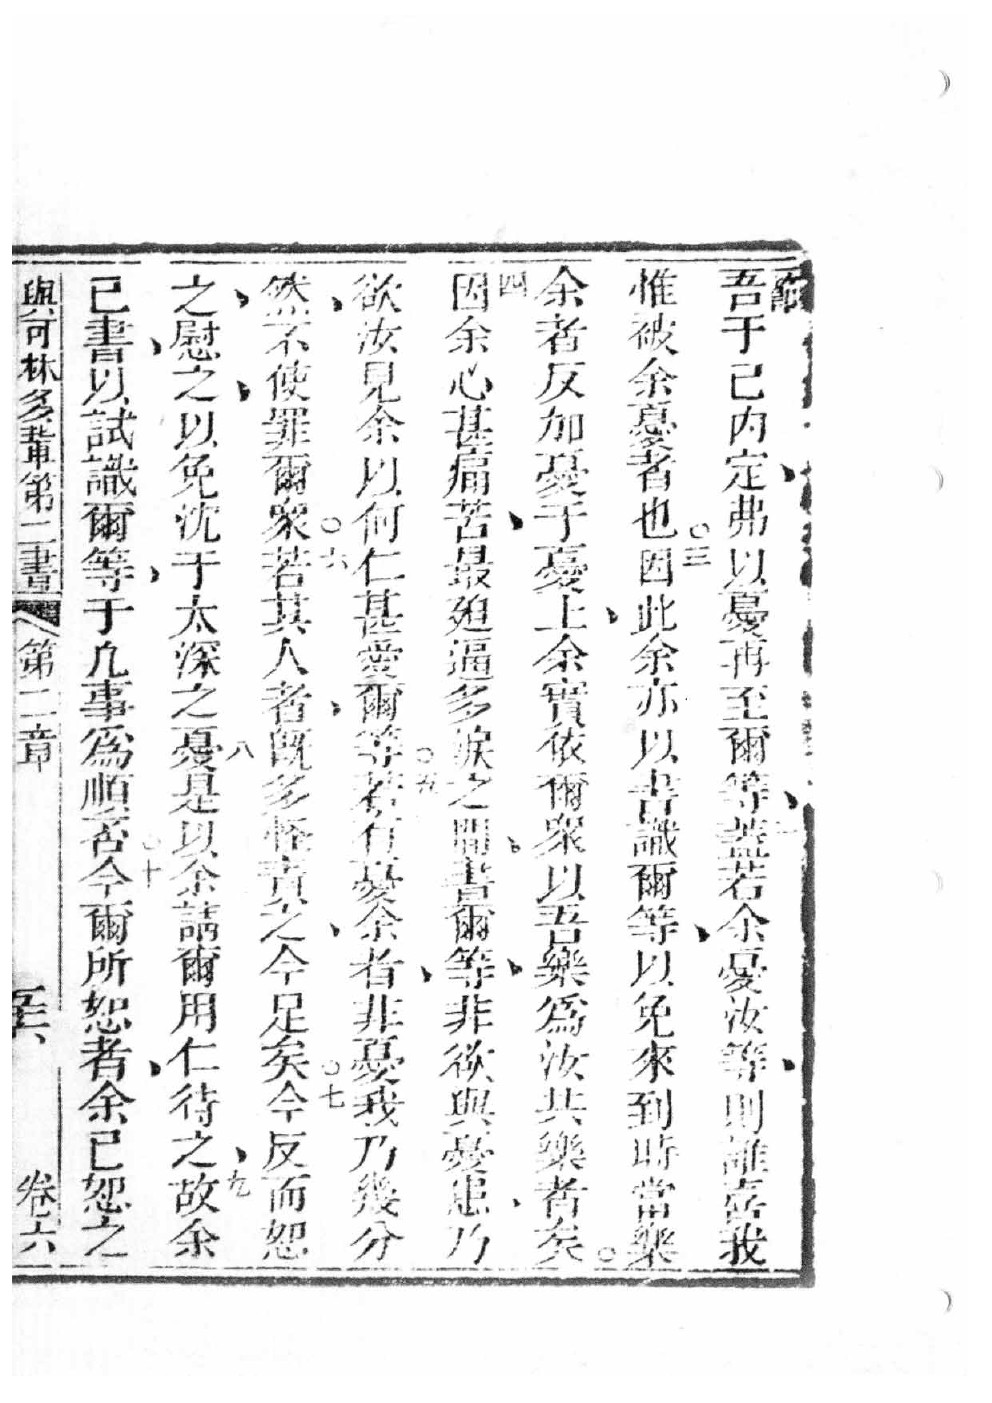 吾于己內定弗以憂再至爾等蓋若余憂汝等則誰喜我
惟被余憂者也○三因此余亦以書識爾等以免來到時當樂
余者反加憂于憂上余實依爾眾以吾樂為汝共樂者矣○
四因余心甚痛苦最廹逼多淚之間書爾等非欲與憂患乃
欲汝見余以何仁甚愛爾等○五若有憂余者非憂我乃幾分
然不使罪爾眾○六若其人者既多怪責之今足矣○七今反而恕
之慰之以免沈于太深之憂八是以余請爾用仁待之九故余
已書以試識爾等于凡事為順否○十今爾所恕者余已恕之
與可林多輩第二書 第二章 卷六